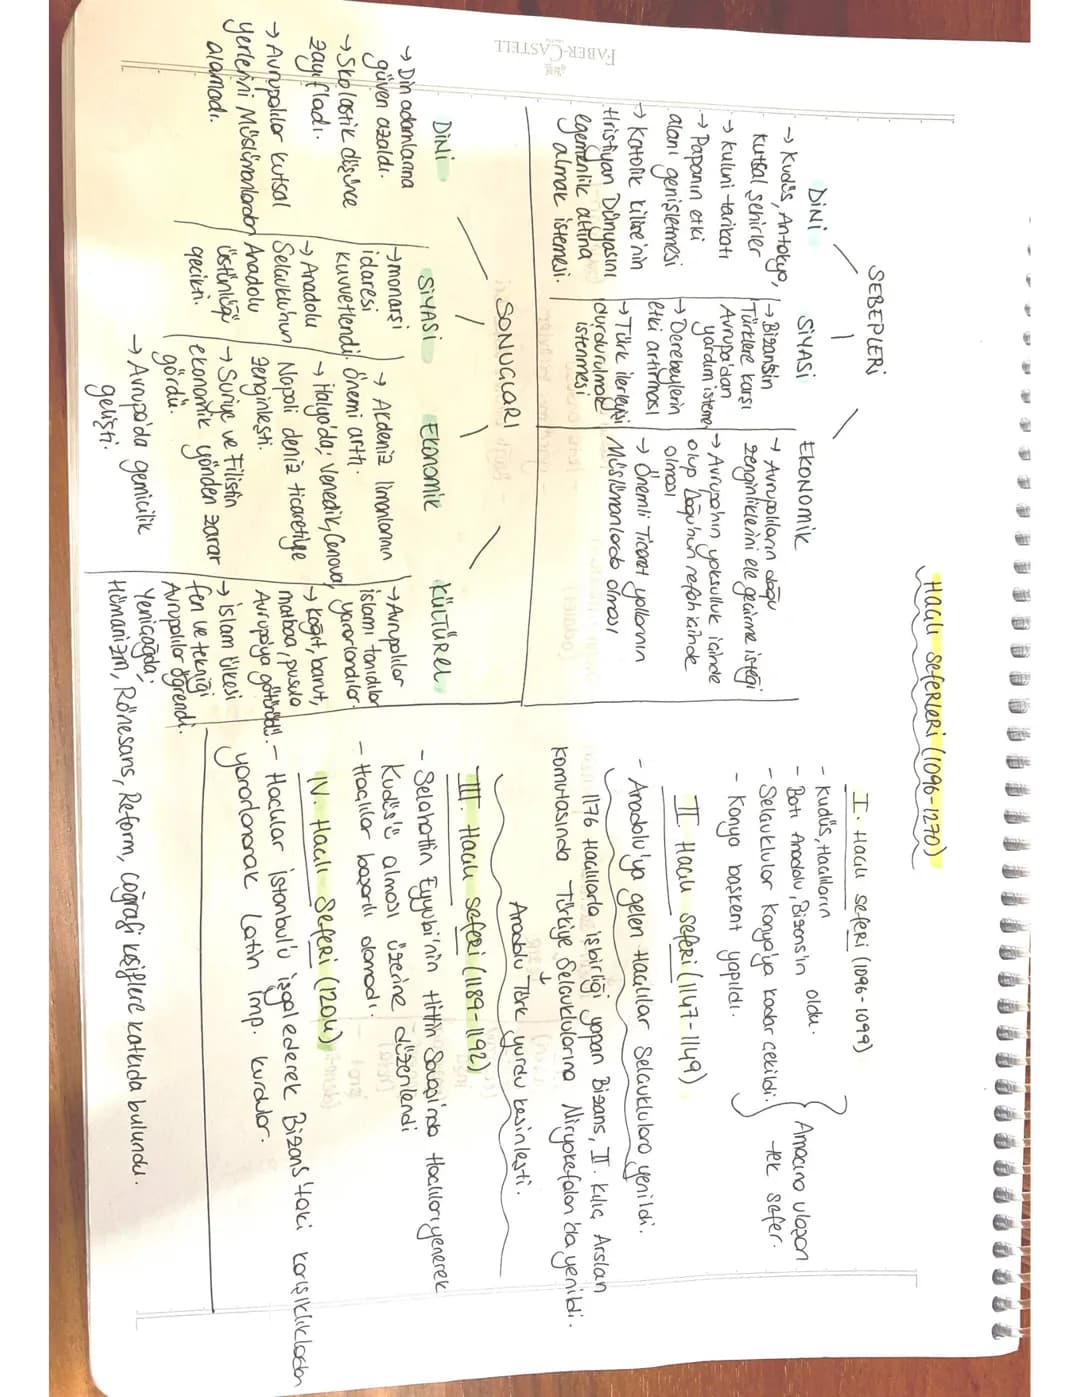 Haçlı SefeRleRi (1096-1270)
SEBEPLERİ
DİNİ
→ Kudüs, Antakya,
kutsal şehirler
→ kuluni tarikatı
→ Papanın etki
alanı genişletmesi
→ Katolik kilise'nin
Hristiyan Dünyasını
egemenlik altına
almak istemesi.
SİYASİ
→ Bizans'ın
Türklere karşı
Avrupa'dan
yardım isteme
→ Derebeylerin
etki artırması
→ Türk ilerleyişi
durdurulmak
istenmesi
EKONOMİK
→ Avrupalıların doğu
zenginliklerini ele geçirme isteği
→ Avrupa'nın yoksulluk içinde
olup Doğu'nun refah içinde
olması
→ Önemli Ticaret yollarının
Müslümanlarda olması
SONUÇLARI
DİNİ
→ Din adamlarına
güven azaldı.
→ Skolastik düşünce
zayıfladı.
→ Avrupalılar kutsal
yerlerini Müslümanlardan
alamadı.
SİYASİ
→ monarşi
idaresi
kuvvetlendi.
→ Anadolu
Selçuklu'nun
Anadolu
üstünlüğü
gecikti.
EKonomik
→ Akdeniz limanlarının
önemi arttı.
→ İtalya'da; Venedik, Cenova,
Napoli deniz ticaretiyle
zenginleşti.
→ Suriye ve Filistin
ekonomik yönden zarar
gördü.
→ Avrupa'da gemicilik
gelişti.
KÜLTÜREL
→ Avrupalılar
İslamı tanıdılar
yararlandılar.
→ kağıt, barut,
matbaa, pusula
Avrupa'ya götürüldü.
→ İslam Ülkesi
fen ve tekniği
Avrupalılar öğrendi.
Yeniçağda;
Hümanizm, Rönesans, Reform, Coğrafi keşiflere katkıda bulundu.
I. Haçlı seferi (1096-1099)
- Kudüs, Haçlıların
- Batı Anadolu, Bizans'ın oldu.
- Selçuklular Konya'ya kadar çekildi.
- Konya başkent yapıldı.
Amacına ulaşan
tek sefer.
II. Haçlı seferi (1147-1149)
- Anadolu'ya gelen Haçlılar Selçuklulara yenildi.
1176 Haçlılarla işbirliği yapan Bizans, II. Kılıç Arslan
komutasında Türkiye Selçuklularına Miryokefalon'da yenildi.
↓
Anadolu Türk yurdu kesinleşti.
III. Haçlı seferi (1189-1192)
- Selahattin Eyyubi'nin Hittin Savaşı'nda Haçlıları yenerek
Kudüs'ü alması üzerine düzenlendi
- Haçlılar başarılı olamadı.
IV. Haçlı SefeRi (1204)
- Haçlılar İstanbul'u işgal ederek Bizans'taki karışıklıklardan
yararlanarak Latin İmp. kurdular.
FABER-CASTELL